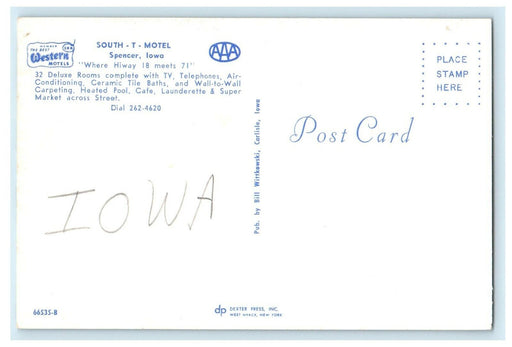 MEMBER
THE BEST
Western
MOTELS
SOUTH - T - MOTEL
Spencer, Iowa
"Where Hiway 18 meets 71"
32 Deluxe Rooms complete with TV, Telephones, Air-
Conditioning, Ceramic Tile Baths, and Wall-to-Wall
Carpeting, Heated Pool, Cafe, Launderette & Super
Market across Street.
Dial 262-4620
AAA
PLACE
STAMP
HERE
Post Card
Pub. by Bill Wittkowski, Carlisle, Iowa
IOWA
66535-B
dp DEXTER PRESS, INC.
WEST NYACK, NEW YORK